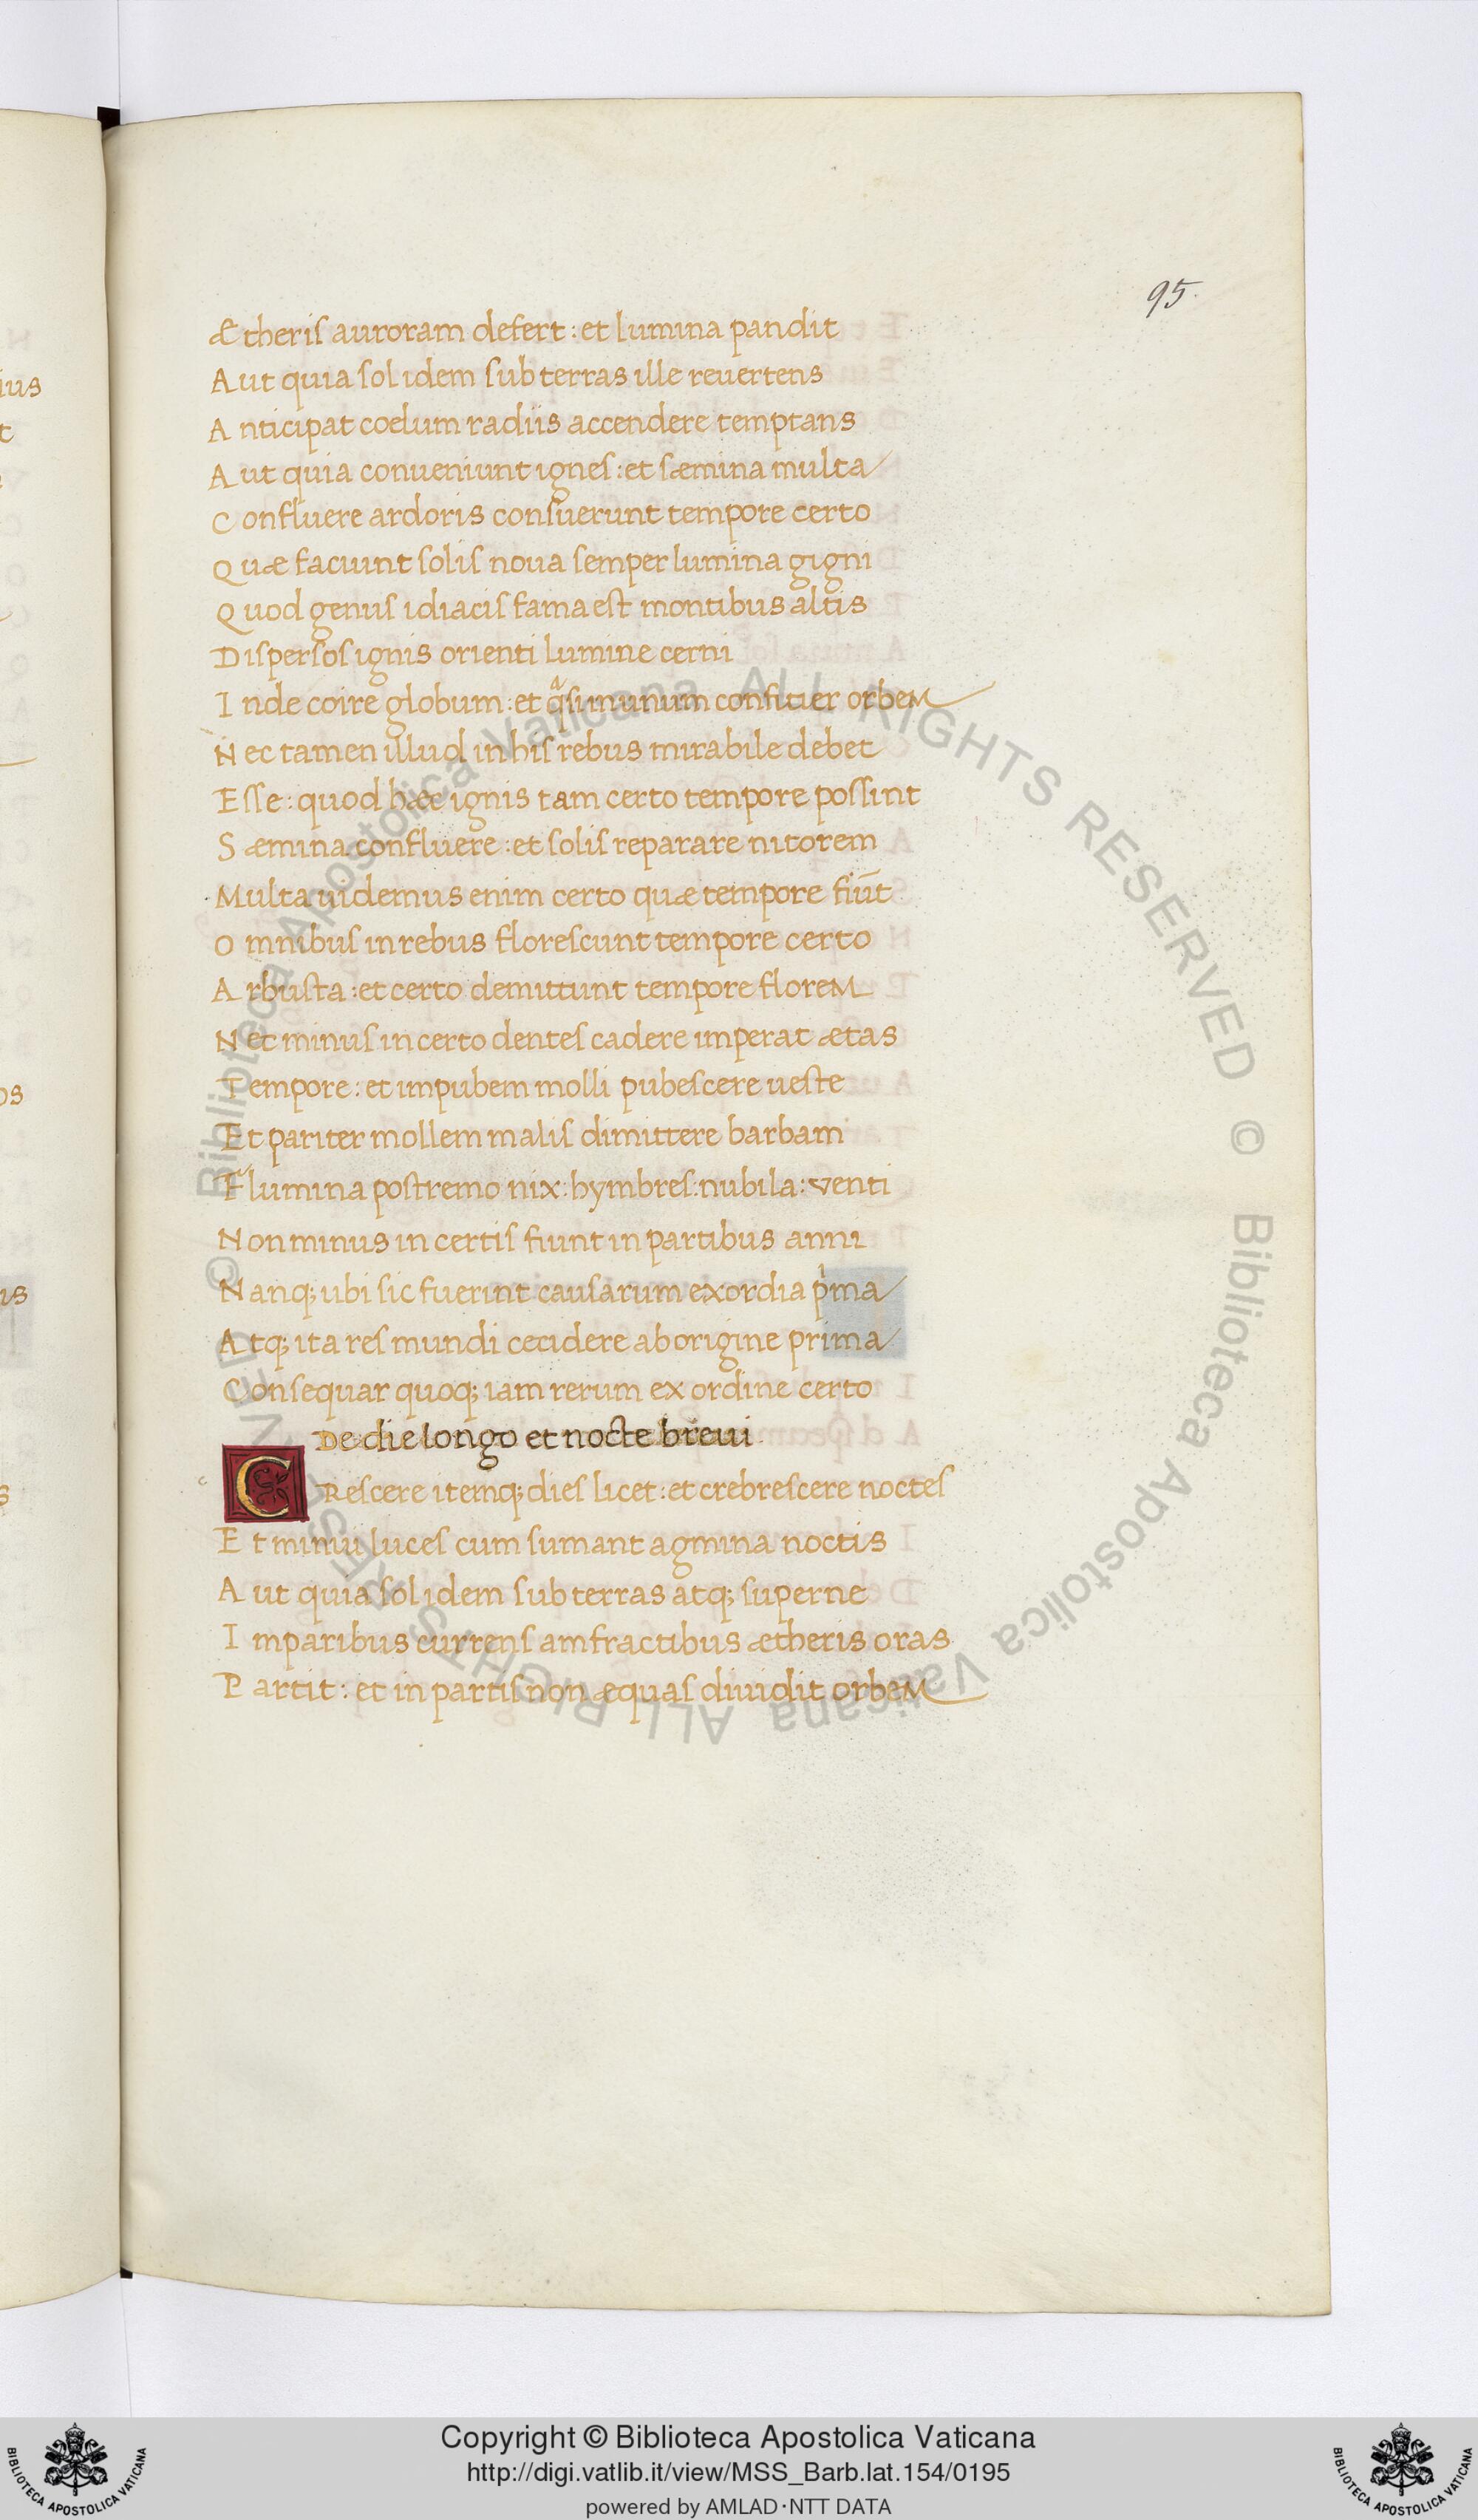 95.
Ætheris auroram defert: et lumina pandit
Aut quia sol idem sub terras ille reuertens
Anticipat coelum radiis accendere temptans
Aut quia conueniunt ignes: et sæmina multa
Confluere ardoris consuerunt tempore certo
Quæ faciunt solis noua semper lumina gigni
Quod genus idiacis fama est montibus altis
Dispersos ignis orienti lumine cerni
Inde coire globum: et qᵃsi munum confitier orbem
Nec tamen illud in his rebus mirabile debet
Esse: quod hæc ignis tam certo tempore possint
Sæmina confluere: et solis reparare nitorem
Multa uidemus enim certo quæ tempore fiūt
Omnibus in rebus florescunt tempore certo
Arbusta: et certo demittunt tempore florem
Nec minus in certo dentes cadere imperat ætas
Tempore: et impubem molli pubescere ueste
Et pariter mollem malis dimittere barbam
Flumina postremo nix: hymbres: nubila: venti
Non minus in certis fiunt in partibus anni
Nanq; ubi sic fuerint causarum exordia pⁱma
Atq; ita res mundi cecidere ab origine prima
Consequar quoq; iam rerum ex ordine certo
De die longo et nocte breui
CRescere itemq; dies licet: et crebrescere noctes
Et minui luces cum sumant agmina noctis
Aut quia sol idem sub terras atq; superne
Imparibus currens amfractibus ætheris oras
Partit: et in partis non æquas diuidit orbem
© Biblioteca Apostolica Vaticana ALL RIGHTS RESERVED
© Biblioteca Apostolica Vaticana ALL RIGHTS RESERVED
Copyright © Biblioteca Apostolica Vaticana
http://digi.vatlib.it/view/MSS_Barb.lat.154/0195
powered by AMLAD·NTT DATA
BIBLIOTECA APOSTOLICA VATICANA
BIBLIOTECA APOSTOLICA VATICANA